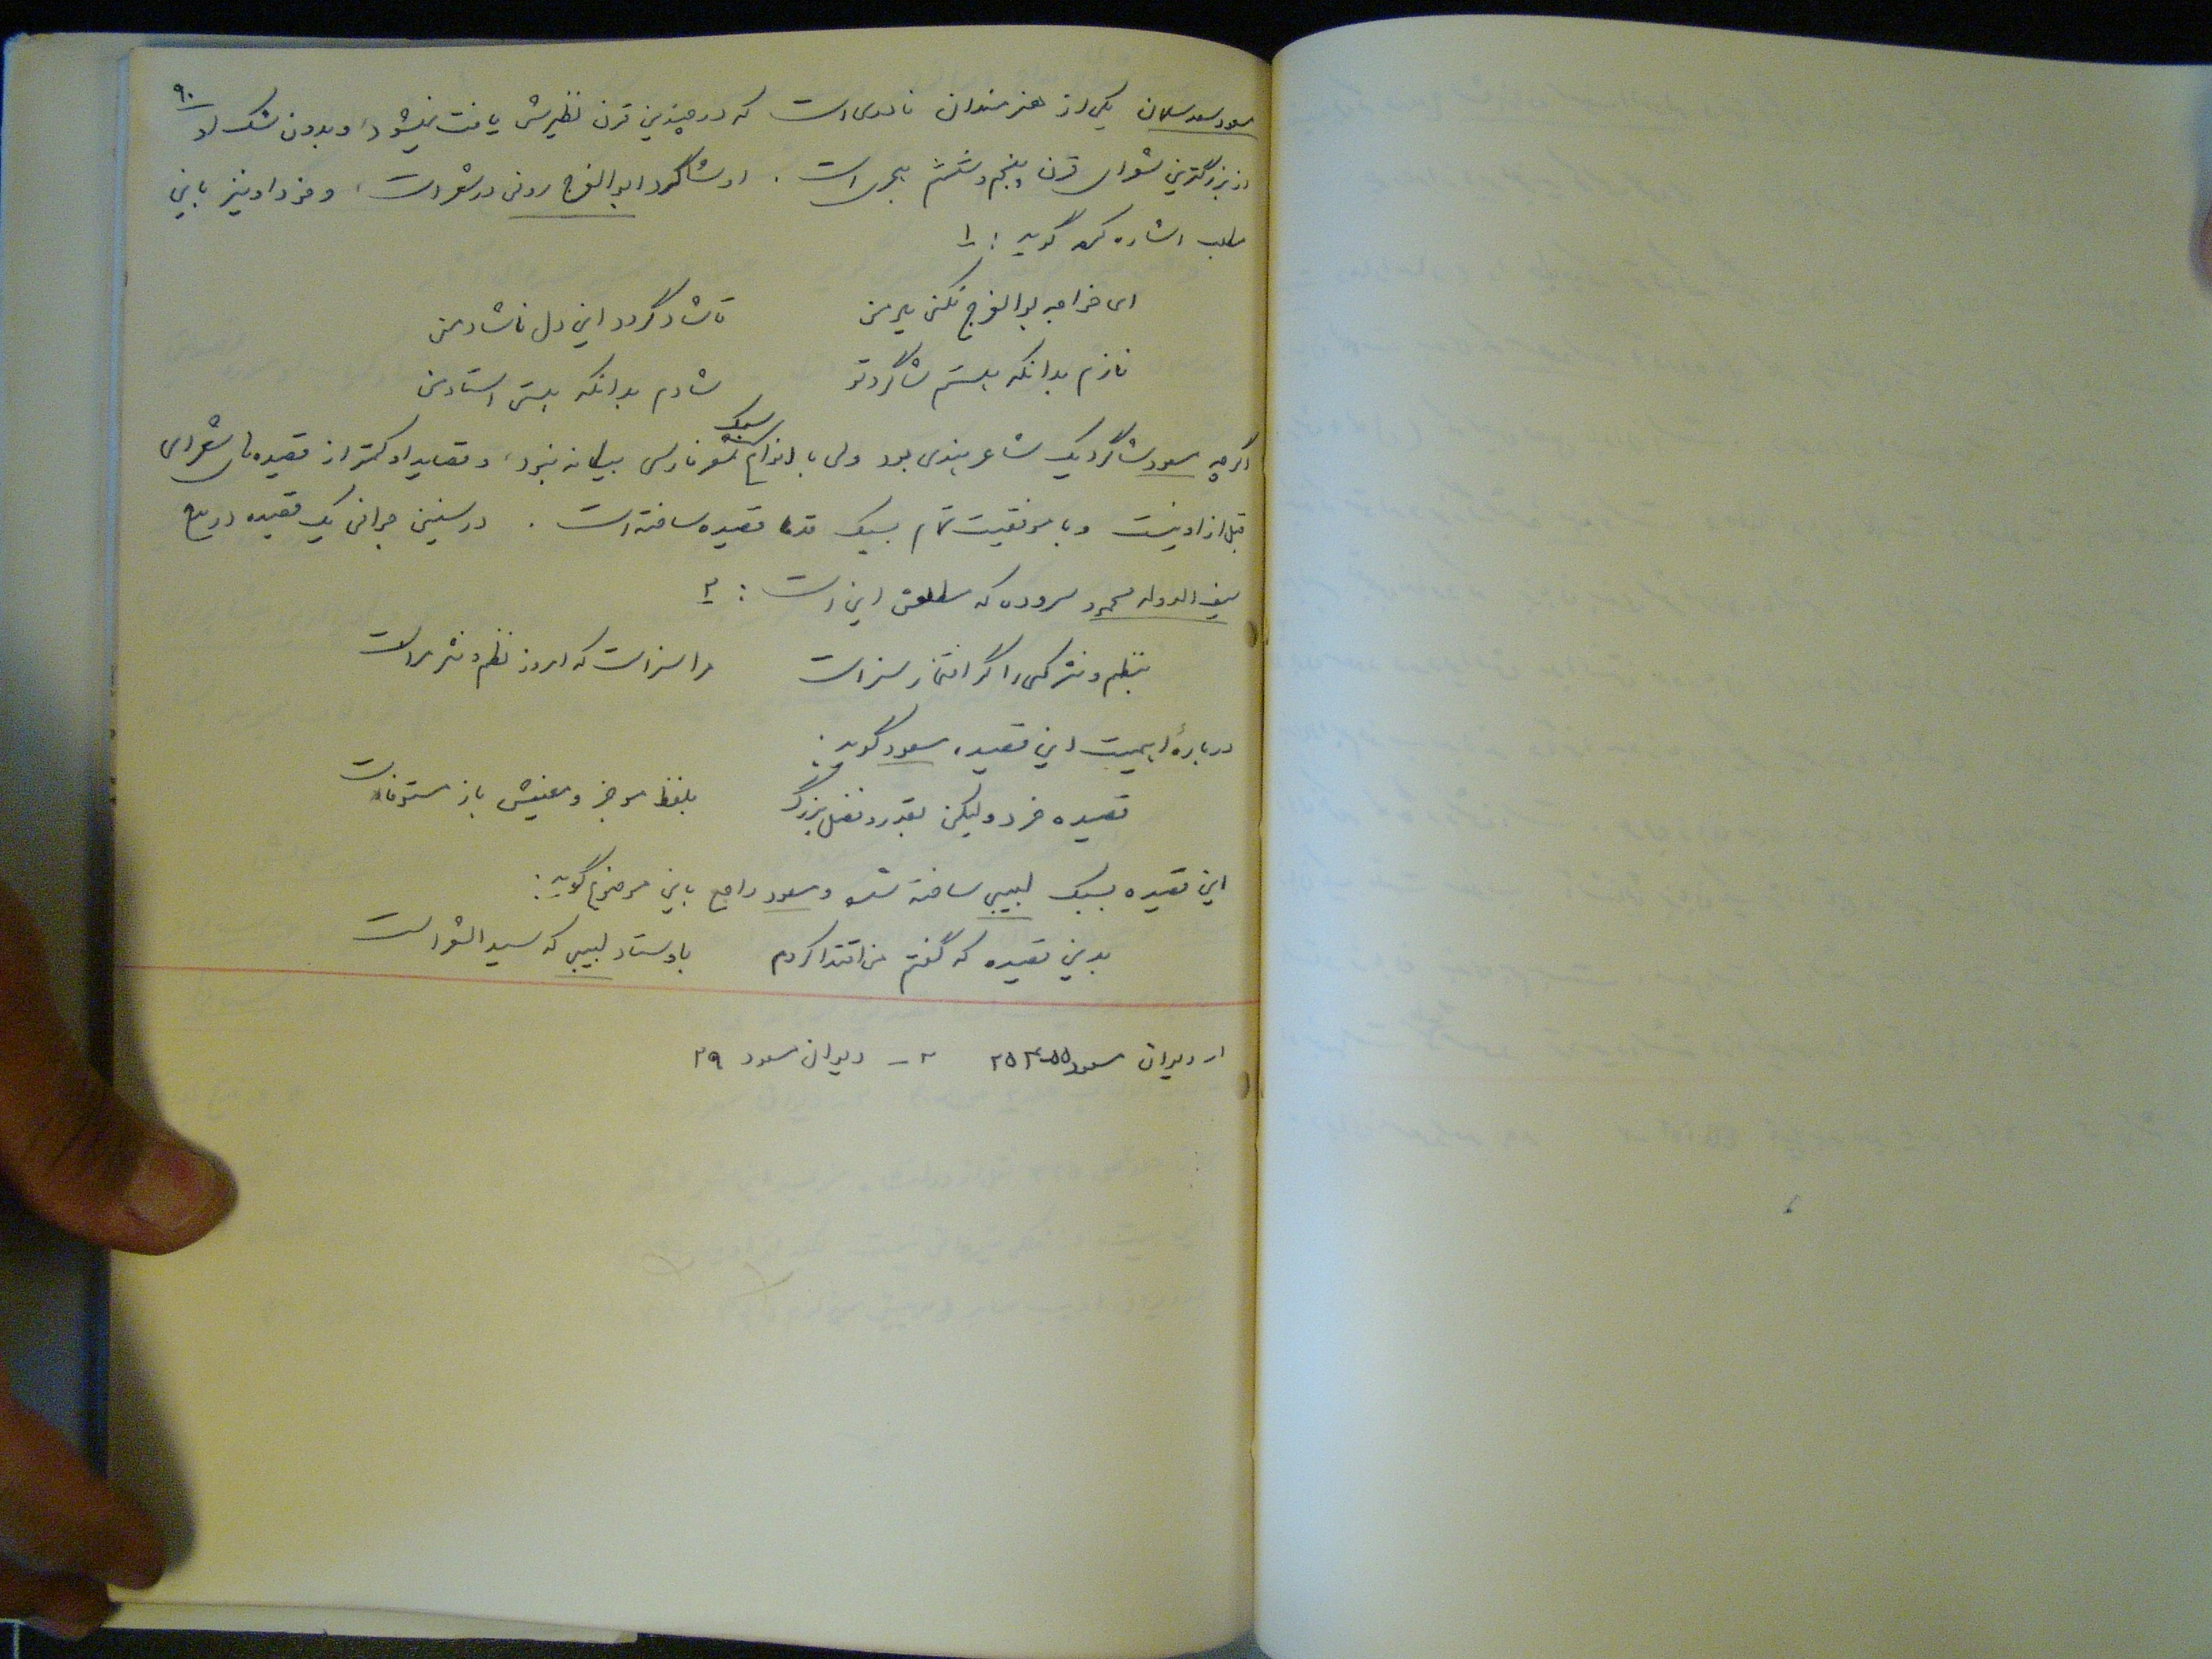 ۹۰
مسعود سعد سلمان یکی از هنرمندان نادری است که در چندین قرن نظیرش یافت نمیشود، و بدون شک او
از بزرگترین شعرای قرن پنجم و ششم هجری است. او شاگرد ابوالفرج رونی در شعر است، و خود او نیز باین
مطلب اشاره کرده گوید: ۱
ای خواجه بوالفرج نکنی یاد من تا شاد گردد این دل ناشاد من
نازم بدانکه هستم شاگرد تو شادم بدانکه هستی استاد من
اگرچه مسعود شاگرد یک شاعر هندی بود ولی با انواع سبک شعر فارسی بیگانه نبود، و قصاید او کمتر از قصیده های شعرای
قبل از او نیست و با موفقیت تمام بسبک قدما قصیده ساخته است. در سنین جوانی یک قصیده در مدح
سیف الدوله محمود سروده که مطلعش این است: ۲
بنظم و نثر کسی را گر افتخار سزاست مرا سزاست که امروز نظم و نثر مراست
دربارهٔ اهمیت این قصیده مسعود گوید:
قصیده خرد ولیکن بقدر و فضل بزرگ بلفظ موجز و معنیش باز مستوفاست
این قصیده بسبک لبیبی ساخته شده و مسعود راجع باین موضوع گوید:
بدین قصیده که گفتم من اقتدا کردم باوستاد لبیبی که سید الشعراست
۱ـ دیوان مسعود ۲ـ دیوان مسعود ۲۹